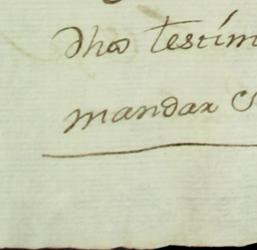 dho testim
mandar